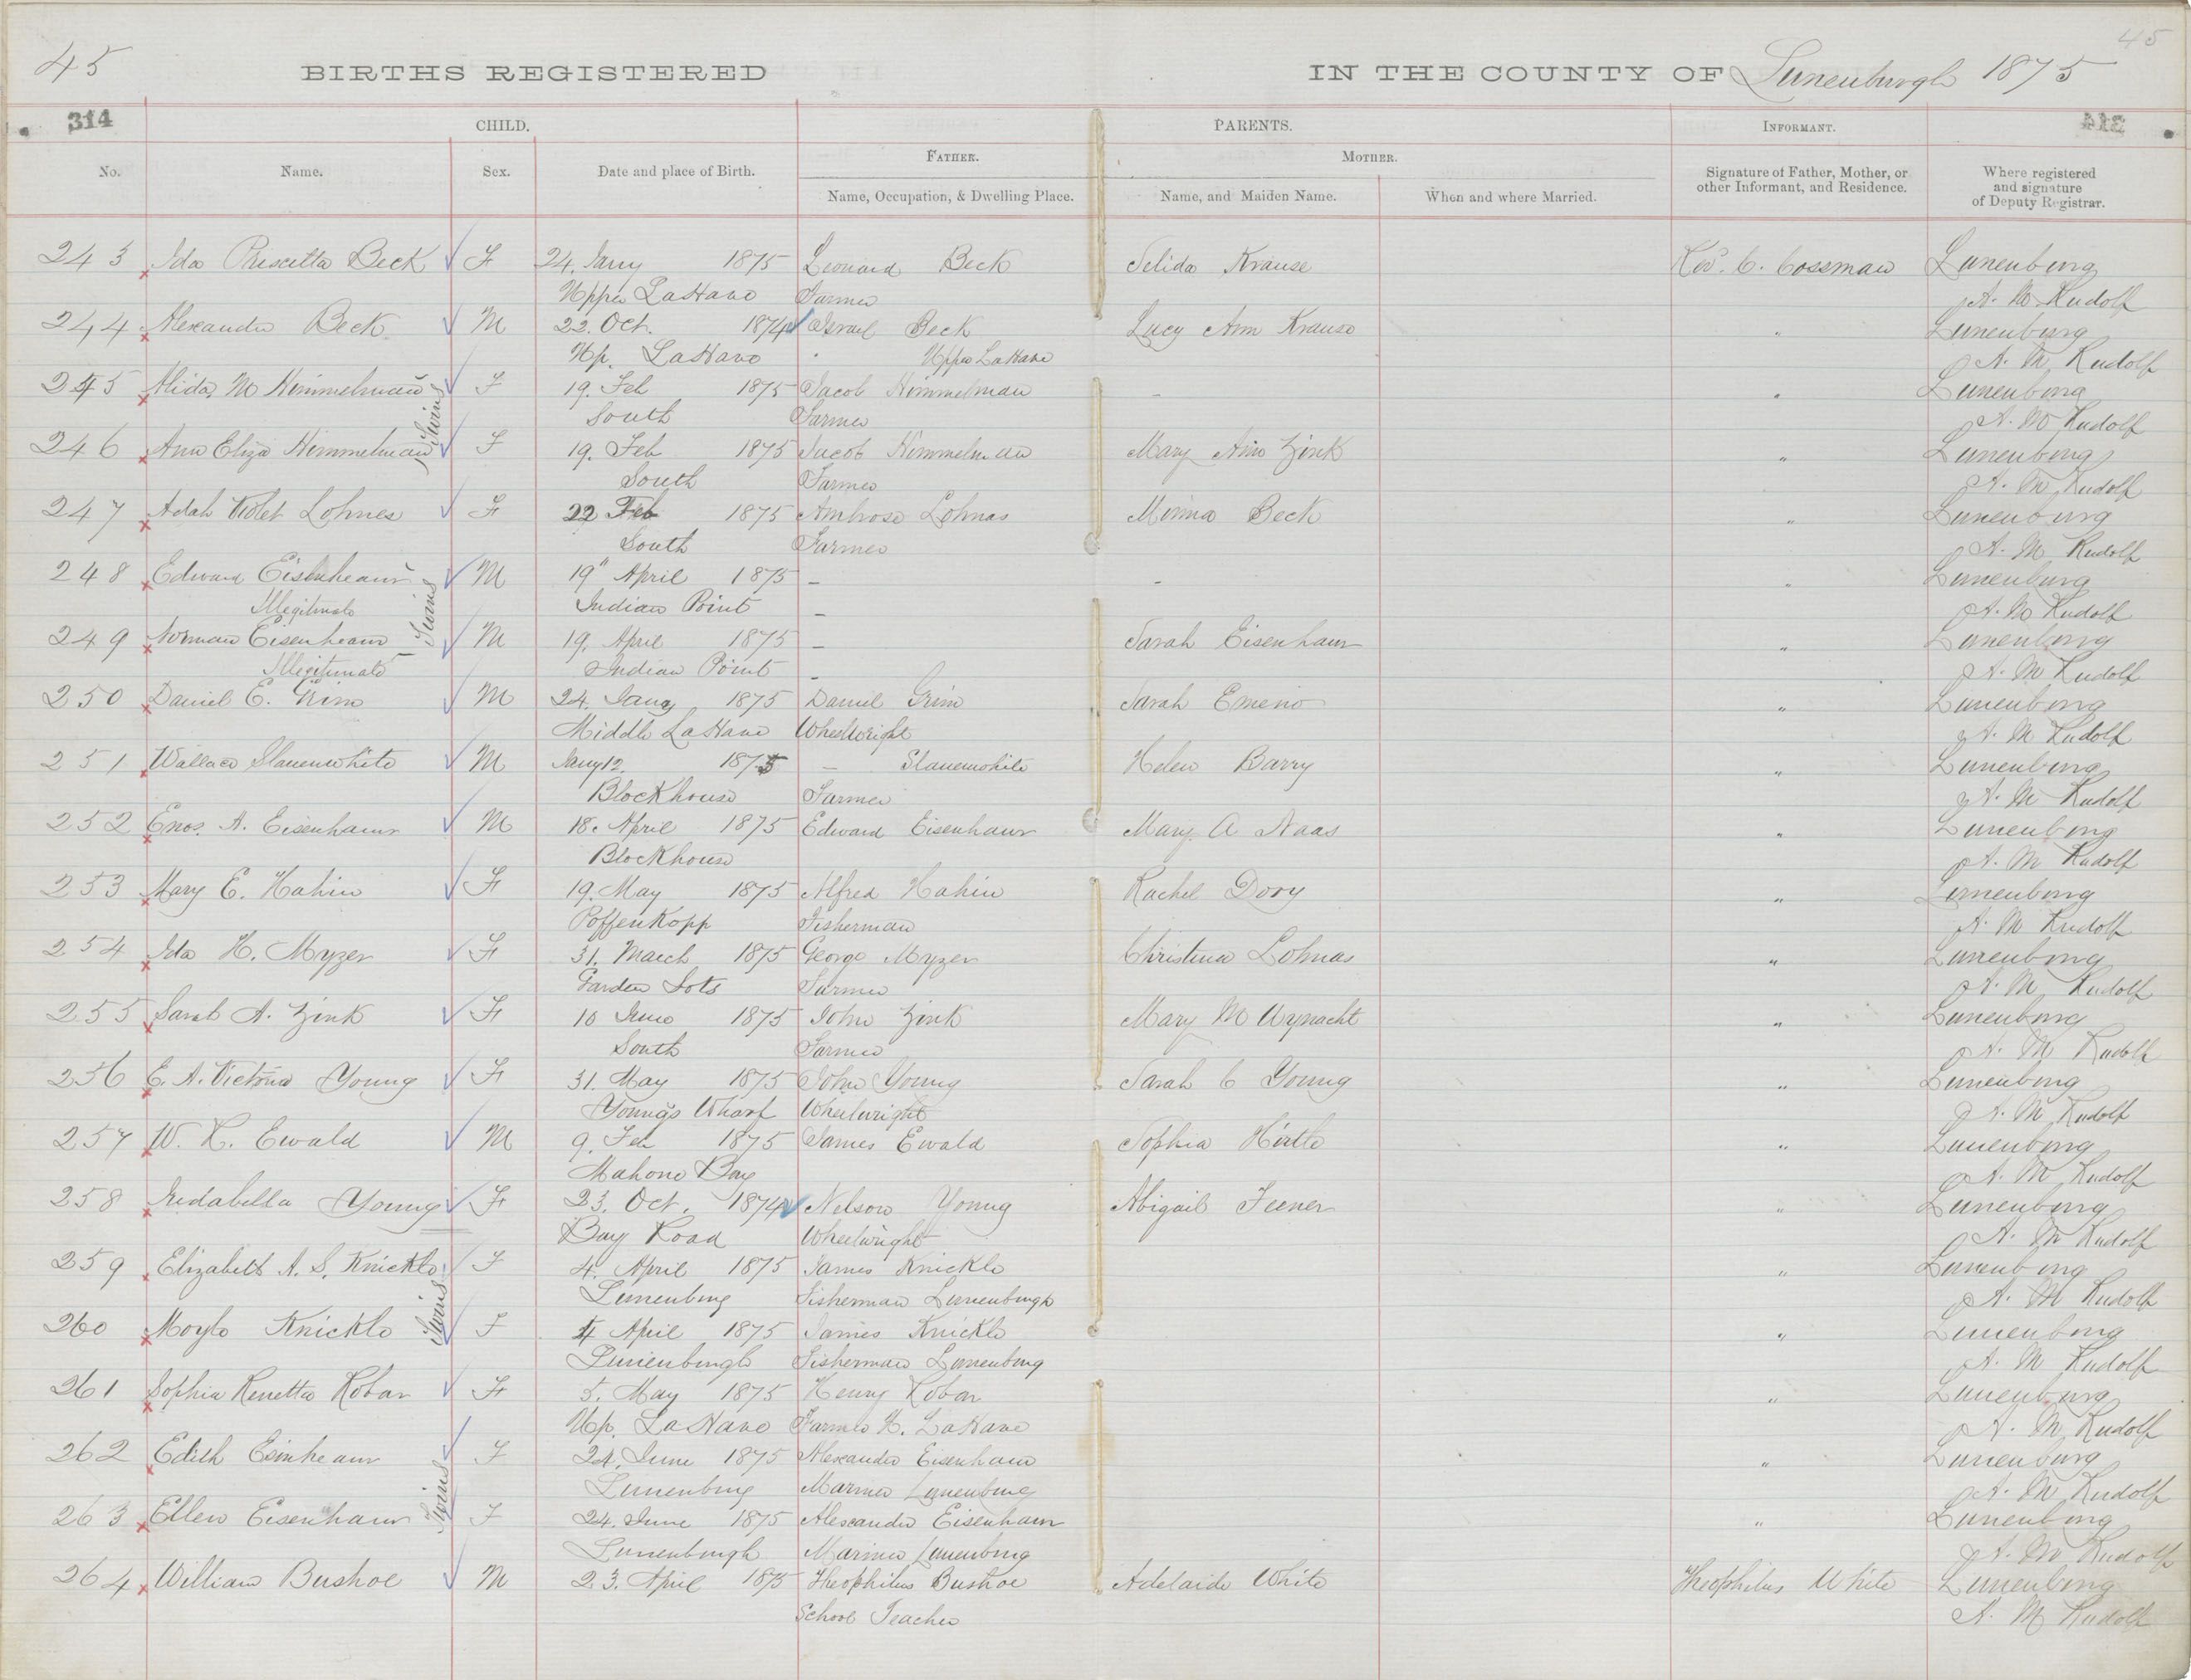 45
45
BIRTHS REGISTERED IN THE COUNTY OF Lunenburgh 1875
314
CHILD. PARENTS. INFORMANT.
314
No. Name. Sex. Date and place of Birth. FATHER. MOTHER. Signature of Father, Mother, or other Informant, and Residence. Where registered and signature of Deputy Registrar.
Name, Occupation, & Dwelling Place. Name, and Maiden Name. When and where Married.
243 Ida Priscetta Beck F 24. Jany 1875 Leonard Beck Selida Krause Rev. C. Cossman Lunenburg
Upper LaHave Farmer A. M Rudolf
244 Alexander Beck M 22. Oct. 1874 Israel Beck Lucy Ann Krause " Lunenburg
Up. LaHave " Upper LaHave A. M Rudolf
245 Alida M Himmelman F 19. Feb 1875 Jacob Himmelman - " Lunenburg
Twins
South Farmer A. M Rudolf
246 Ann Eliza Himmelman F 19. Feb 1875 Jacob Himmelman Mary Ann Zink " Lunenburg
South Farmer A. M Rudolf
247 Adah Violet Lohnes F 22 Feb 1875 Ambrose Lohnas Minna Beck " Lunenburg
South Farmer A. M Rudolf
248 Edward Eisenhaur M 19" April 1875 - - " Lunenburg
Illegitimate Indian Point - A. M Rudolf
Twins
249 Norman Eisenhaur M 19. April 1875 - Sarah Eisenhaur " Lunenburg
Illegitimate Indian Point - A. M Rudolf
250 Daniel E. Grim M 24. Jany 1875 Daniel Grim Sarah Emeno " Lunenburg
Middle LaHave Wheelwright A. M Rudolf
251 Wallace Slauenwhite M Jany 12. 1875 - Slauenwhite Helen Barry " Lunenburg
Blockhouse Farmer A. M Rudolf
252 Enos. A. Eisenhaur M 18. April 1875 Edward Eisenhaur Mary. A Naas " Lunenburg
Blockhouse A. M Rudolf
253 Mary E. Hahin F 19. May 1875 Alfred Hahin Rachel Dory " Lunenburg
Poffenkopp Fisherman A. M Rudolf
254 Ida H. Myzer F 31. March 1875 George Myzer Christina Lohnas " Lunenburg
Garden Lots Farmer A. M Rudolf
255 Sarah A. Zink F 10 June 1875 John Zink Mary M Wynacht " Lunenburg
South Farmer A. M Rudolf
256 E. A. Victoria Young F 31. May 1875 John Young Sarah C Young " Lunenburg
Young's Wharf Wheelwright A. M Rudolf
257 W. H. Ewald M 9. Feb 1875 James Ewald Sophia Hirtle " Lunenburg
Mahone Bay A. M Rudolf
258 Iredabella Young F 23. Oct. 1874 Nelson Young Abigail Feener " Lunenburg
Bay Road Wheelwright A. M Rudolf
259 Elizabeth A. S. Knickle F 4. April 1875 James Knickle " Lunenburg
Lunenburg Fisherman Lunenburgh A. M Rudolf
Twins
260 Moyle Knickle F 4 April 1875 James Knickle " Lunenburg
Lunenburgh Fisherman Lunenburg A. M Rudolf
261 Sophia Renetta Robar F 5. May 1875 Henry Robar " Lunenburg
Up. LaHave Farmer U. LaHave A. M Rudolf
262 Edith Esinhaur F 24. June 1875 Alexander Eisenhaur " Lunenburg
Lunenburg Mariner Lunenburg A. M Rudolf
Twins
263 Ellen Eisenhaur F 24. June 1875 Alexander Eisenhaur " Lunenburg
Lunenburgh Mariner Lunenburg A. M Rudolf
264 William Bushoe M 23. April 1875 Theophilus Bushoe Adelaide White Theophilus White Lunenburg
School Teacher A. M Rudolf